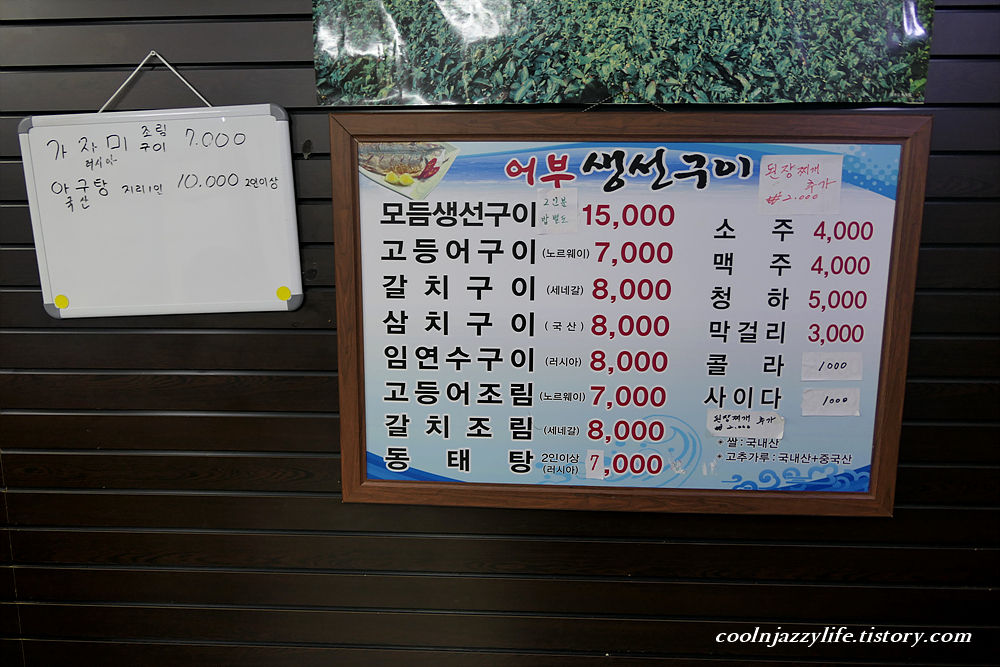 가자미 조림 7.000
러시아 구이
아구탕 지리 1인 10.000 2인이상
국산
어부 생선구이
된장찌개
추가
₩2.000
모듬생선구이 2인분 밥별도 15,000
고등어구이 (노르웨이) 7,000
갈치구이 (세네갈) 8,000
삼치구이 (국산) 8,000
임연수구이 (러시아) 8,000
고등어조림 (노르웨이) 7,000
갈치조림 (세네갈) 8,000
동태탕 2인이상 (러시아) 7,000
소주 4,000
맥주 4,000
청하 5,000
막걸리 3,000
콜라 1000
사이다 1000
된장찌개 추가
₩2.000
* 쌀 : 국내산
* 고추가루 : 국내산+중국산
coolnjazzylife.tistory.com